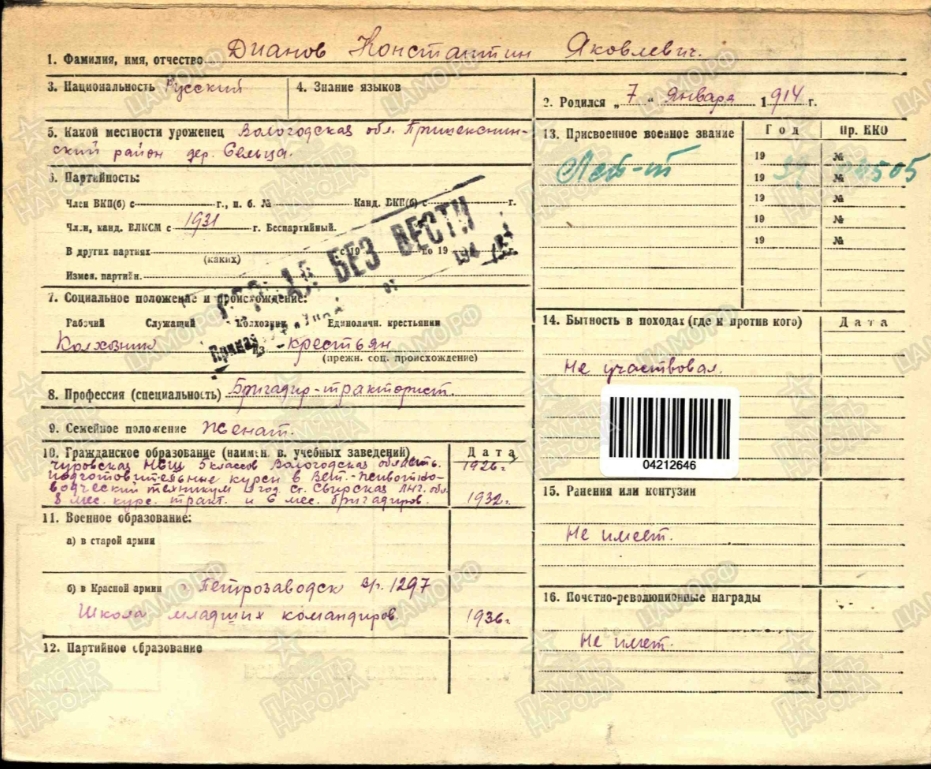 1. Фамилия, имя, отчество Дианов Константин Яковлевич.
3. Национальность Русский
4. Знание языков
2. Родился „ 7 " января 1914 г.
5. Какой местности уроженец Вологодская обл. Пришекснин-
ский район дер. Сельца.
6. Партийность:
Член ВКП(б) с г., п. б. № Канд. ВКП(б) с г.
Член, канд. ВЛКСМ с 1931 г. Беспартийный.
В других партиях с 19 по 19
(каких)
Измен. партийн.
БЕЗ ВЕСТИ
7. Социальное положение и происхождение:
Рабочий Служащий Колхозник Единоличн. крестьянин
Колхозник из -крестьян
(прежн. соц. происхождение)
8. Профессия (специальность) Бригадир-тракторист.
9. Семейное положение Женат.
10. Гражданское образование (наимен. в. учебных заведений)
Дата
Чуровская НСШ 5 классов Вологодская область. 1926 г.
подготовительные курсы в Вет.-животно-
водческий техникум 1 год ст. Свирская Лнг. обл.
8 мес. курс. тракт. и 6 мес. бригадиров. 1932 г.
11. Военное образование:
а) в старой армии
б) в Красной армии г Петрозаводск в/ч. 1297
Школа младших командиров 1936 г
12. Партийное образование
13. Присвоенное военное звание
Год
Пр. НКО
Лет-т
19 №
19 39 №
19 №
19 №
19 №
14. Бытность в походах (где и против кого)
Дата
Не участвовал.
04212646
15. Ранения или контузии
Не имеет.
16. Почетно-революционные награды
Не имеет.
ЦАМО.РФ
ПАМЯТЬ
НАРОДА